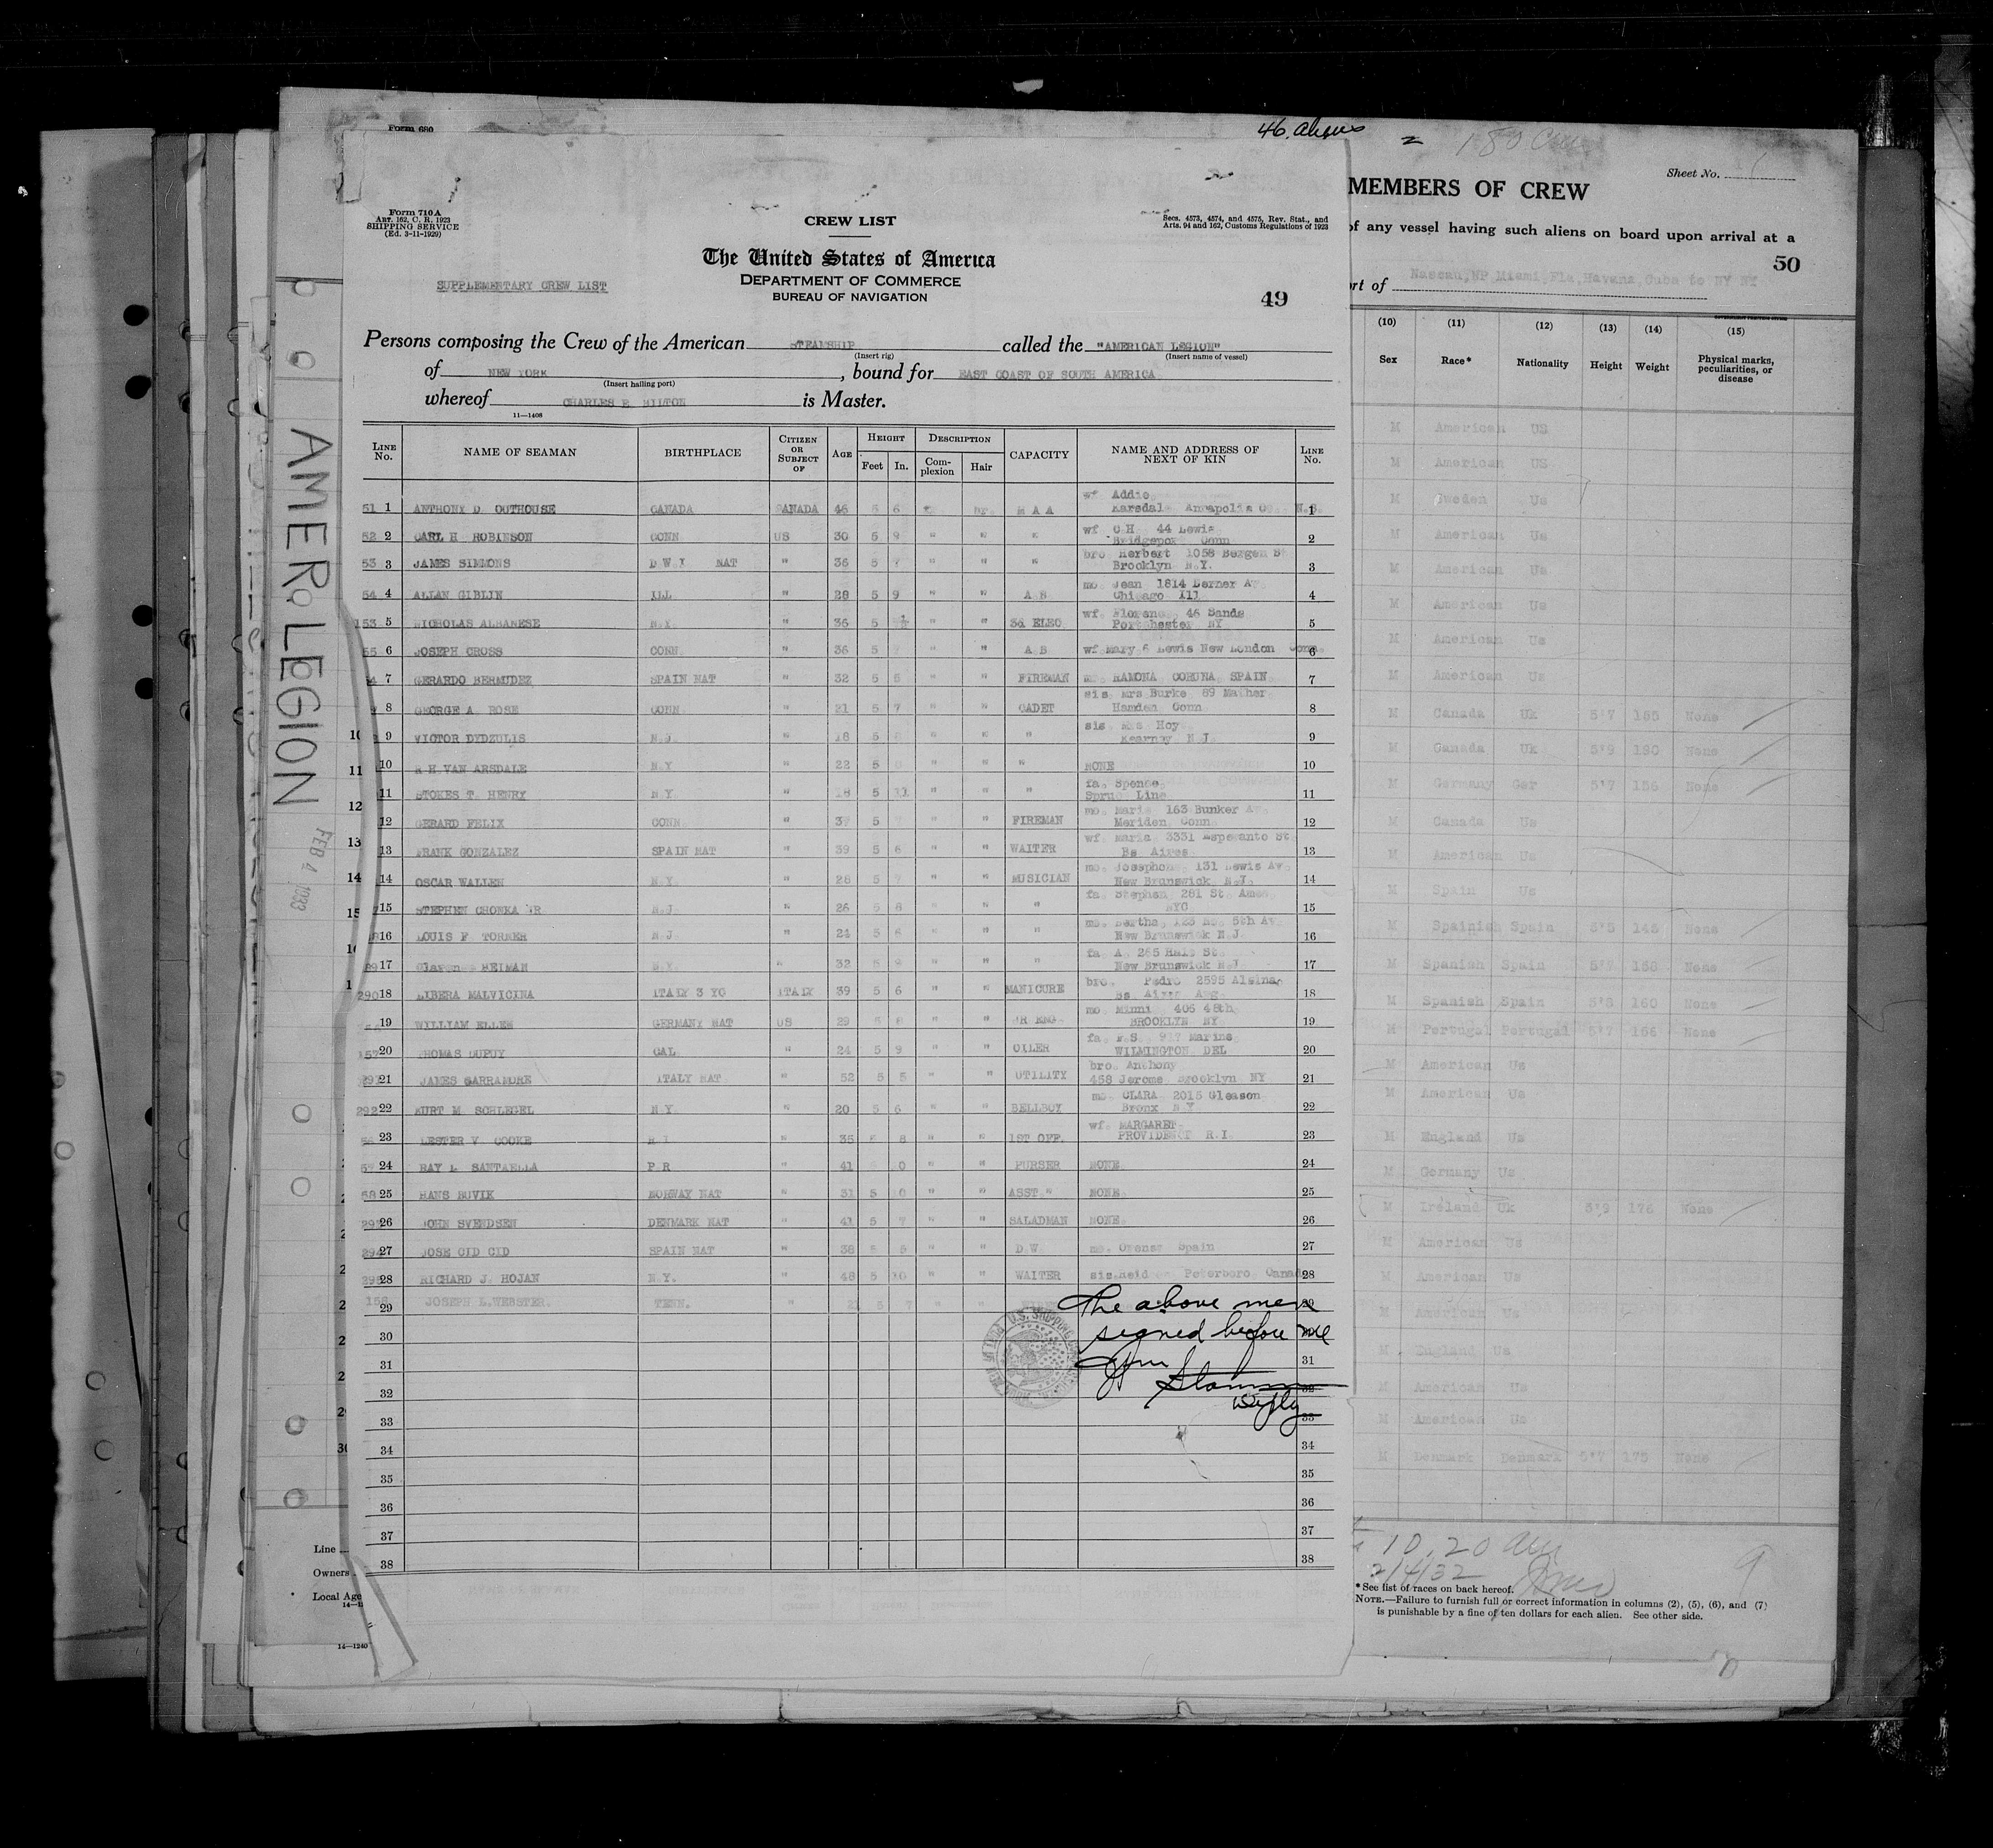 Form 680
46. aliens
= 180 Crew
Form 710 A
Art. 162, C. R. 1923
SHIPPING SERVICE
(Ed. 3-11-1929)
CREW LIST
Secs. 4573, 4574, and 4575, Rev. Stat., and
Arts. 94 and 162, Customs Regulations of 1923
The United States of America
DEPARTMENT OF COMMERCE
BUREAU OF NAVIGATION
SUPPLEMENTARY CREW LIST
49
Persons composing the Crew of the American STEAMSHIP called the "AMERICAN LEGION"
(Insert rig) (Insert name of vessel)
of NEW YORK, bound for EAST COAST OF SOUTH AMERICA
(Insert hailing port)
whereof CHARLES E HILTON is Master.
11—1408
LINE No. NAME OF SEAMAN BIRTHPLACE CITIZEN OR SUBJECT OF AGE HEIGHT Feet In. DESCRIPTION Complexion Hair CAPACITY NAME AND ADDRESS OF NEXT OF KIN LINE No.
51 1 ANTHONY D OUTHOUSE CANADA CANADA 46 5 6 br. M A A wf Addie Karsdal Annapolis Co. N.S. 1
52 2 CARL H ROBINSON CONN US 30 5 9 " " " wf C H 44 Lewis Bridgepor Conn 2
53 3 JAMES SIMMONS D W I NAT " 36 5 7 " " " bro Herbert 1058 Bergen St Brooklyn N.Y. 3
54 4 ALLAN GIBLIN ILL " 28 5 9 " " A B mo. Jean 1814 Berner Av Chicago Ill 4
153 5 NICHOLAS ALBANESE N.Y. " 36 5 " " 3d ELEC wf. Florenc 46 Sands Portchester NY 5
55 6 JOSEPH CROSS CONN. " 36 5 7 " " A B wf Mary 6 Lewis New London Conn 6
7 GERARDO BERMUDEZ SPAIN NAT " 32 5 5 " " FIREMAN RAMONA CORUNA SPAIN 7
8 GEORGE A. ROSE CONN. " 21 5 7 " " CADET sis Mrs Burke 89 Mather Hamden Conn 8
9 VICTOR DYDZULIS N.J. " 18 5 " " " sis Mrs Hoy Kearney N.J. 9
10 R H VAN ARSDALE N.Y " 22 5 " " " NONE 10
11 STOKES T. HENRY N Y. " 18 5 11 " " " fa. Spence Spruc Line 11
12 GERARD FELIX CONN " 37 5 7 " " FIREMAN mo. Marie 163 Bunker Av Meriden Conn 12
13 FRANK GONZALEZ SPAIN NAT " 39 5 6 " " WAITER wf. Maria 3331 Esperanto St Bs Aires 13
14 OSCAR WALLEN N.Y. " 26 5 7 " " MUSICIAN mo. Josephen 131 Lewis Av. New Brunswick N.J. 14
15 STEPHEN CHONKA JR N.J. " 26 5 8 " " " fa. Stephen 281 St. Anns NYC 15
16 LOUIS F TORNER N.J " 24 5 6 " " " mo. Bertha, 123 No. 5th Av New Brunswick N.J. 16
17 Clarence HEIMAN N.Y. " 32 5 9 " " " fa A. 265 Hale St. New Brunswick N J 17
290 18 LIBERA MALVICINA ITALY 3 YG ITALY 39 5 6 " " MANICURE bro. Pedro 2595 Alsina Bs Aires Arg. 18
19 WILLIAM ELLEN GERMANY NAT US 29 5 8 " " JR ENG mo. Minni 406 48th BROOKLYN NY 19
157 20 THOMAS DUPUY CAL " 24 5 9 " " OILER fa. F.S. 917 Marine WILMINGTON DEL 20
291 21 JAMES GARRAMORE ITALY NAT " 52 5 5 " " UTILITY bro. Anthony 458 Jerome Brooklyn NY 21
292 22 KURT M. SCHLEGEL N.Y. " 20 5 6 " " BELLBOY mo. CLARA 2015 Gleason Bronx N Y 22
56 23 LESTER V COOKE R I " 35 8 " " 1ST OFF. wf. MARGARET PROVIDENCE R.I. 23
57 24 RAY L SANTAELLA P.R " 41 0 " " PURSER NONE 24
58 25 HANS BUVIK NORWAY NAT " 31 5 " " ASST " NONE 25
293 26 JOHN SVENDSEN DENMARK NAT " 41 5 7 " " SALADMAN NONE 26
294 27 JOSE CID CID SPAIN NAT " 38 5 5 " " D W mo. Orense Spain 27
295 28 RICHARD J. HOJAN N.Y. " 48 5 10 " " WAITER sis Peterboro Canad 28
158 29 JOSEPH L.WEBSTER. TENN. " 5 7 " " 29
The above men
signed before me
Deputy
30
31 31
32 32
33 33
34 34
35 35
36 36
37 37
38 38
AMER. LEGION
FEB 4 1933
Line
Owners
Local Age
14—1240
Sheet No.
MEMBERS OF CREW
of any vessel having such aliens on board upon arrival at a
50
rt of Nassau,NP,Miami,Fla,Havana,Cuba to NY NY
(10) (11) (12) (13) (14) (15)
Sex Race* Nationality Height Weight Physical marks, peculiarities, or disease
M American US
M American US
M Sweden Us
M American Us
M American Us
M American Us
M American Us
M American Us
M Canada Uk 5'7 155 None
M Canada Uk 5'9 190 None
M Germany Ger 5'7 156 None
M Canada Us
M American Us
M Spain Us
M Spainish Spain 5'5 145 None
M Spanish Spain 5'7 168 None
M Spanish Spain 5'8 160 None
M Portugal Portugal 5'7 166 None
M American Us
M American Us
M England Us
M Germany Us
M Ireland Uk 5'9 176 None
M American Us
M American Us
M American Us
M England Us
M American Us
M American Us
M Denmark Denmark 5'7 175 None
10.20 am
2/4/32
*See list of races on back hereof.
NOTE.—Failure to furnish full or correct information in columns (2), (5), (6), and (7)
is punishable by a fine of ten dollars for each alien. See other side.